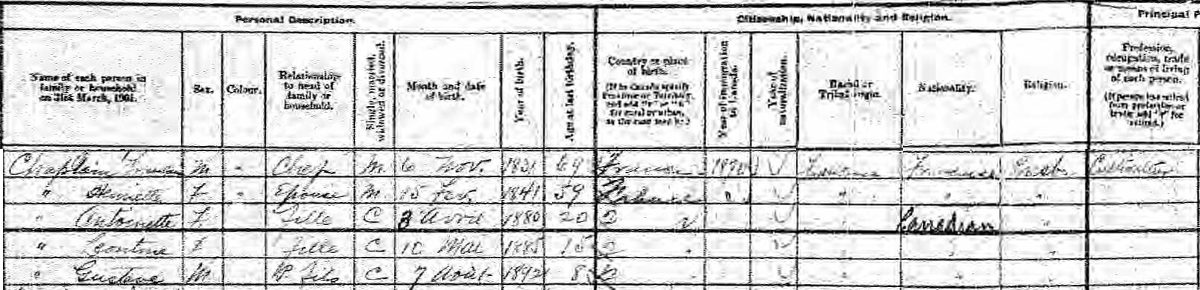 Personal Description. Citizenship, Nationality and Religion. Principal P
Name of each person in family or household on 31st March, 1901. Sex. Colour. Relationship to head of family or household. Single, married, widowed or divorced. Month and date of birth. Year of birth. Age at last birthday. Country or place of birth. (If in Canada specify Province or Territory, and add "r" or "u" for rural or urban, as the case may be.) Year of immigration to Canada. Year of naturalization. Racial or Tribal origin. Nationality. Religion. Profession, occupation, trade or means of living of each person. (If person has retired from profession or trade add "r" for retired.)
Chaplain M Chef M 6 Nov. 1831 69 France
" Henriette F Epouse M 15 Fev. 1841 59 France "
" Antoinette F Fille C 3 Avril 1880 20 Canadian
" Leontine F Fille C 10 Mai 1885 15 "
" Gustave M P. Fils C 7 Août 1892 8